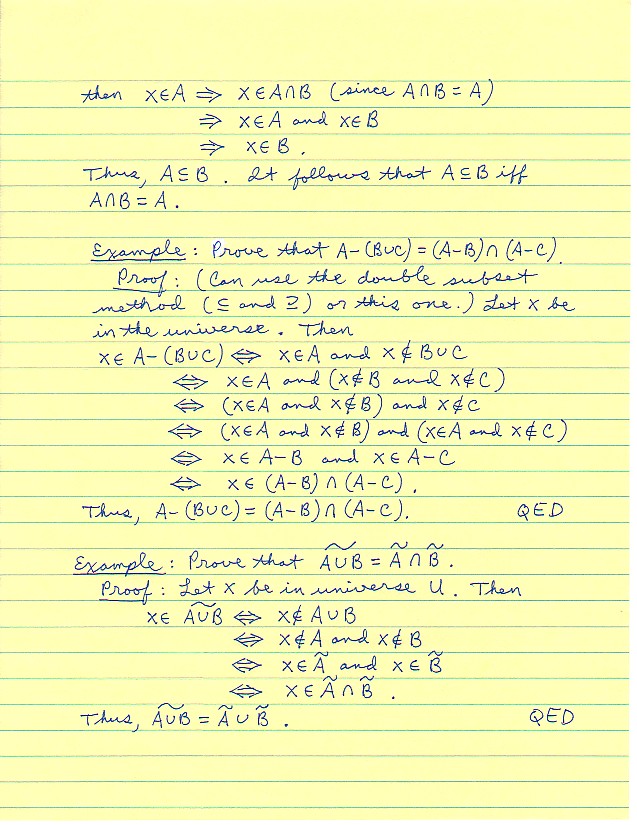 then x∈A ⇒ x∈A∩B (since A∩B = A)
⇒ x∈A and x∈B
⇒ x∈B.
Thus, A⊆B. It follows that A⊆B iff
A∩B = A.
Example: Prove that A-(B∪C) = (A-B)∩(A-C).
Proof: (Can use the double subset
method (⊆ and ⊇) or this one.) Let x be
in the universe. Then
x∈ A-(B∪C) ⇔ x∈A and x∉B∪C
⇔ x∈A and (x∉B and x∉C)
⇔ (x∈A and x∉B) and x∉C
⇔ (x∈A and x∉B) and (x∈A and x∉C)
⇔ x∈A-B and x∈A-C
⇔ x∈ (A-B)∩(A-C).
Thus, A-(B∪C) = (A-B)∩(A-C). QED
Example: Prove that \widetilde{A∪B} = Ã ∩ B̃.
Proof: Let x be in universe U. Then
x∈ \widetilde{A∪B} ⇔ x∉A∪B
⇔ x∉A and x∉B
⇔ x∈Ã and x∈B̃
⇔ x∈Ã∩B̃.
Thus, \widetilde{A∪B} = Ã∪B̃. QED